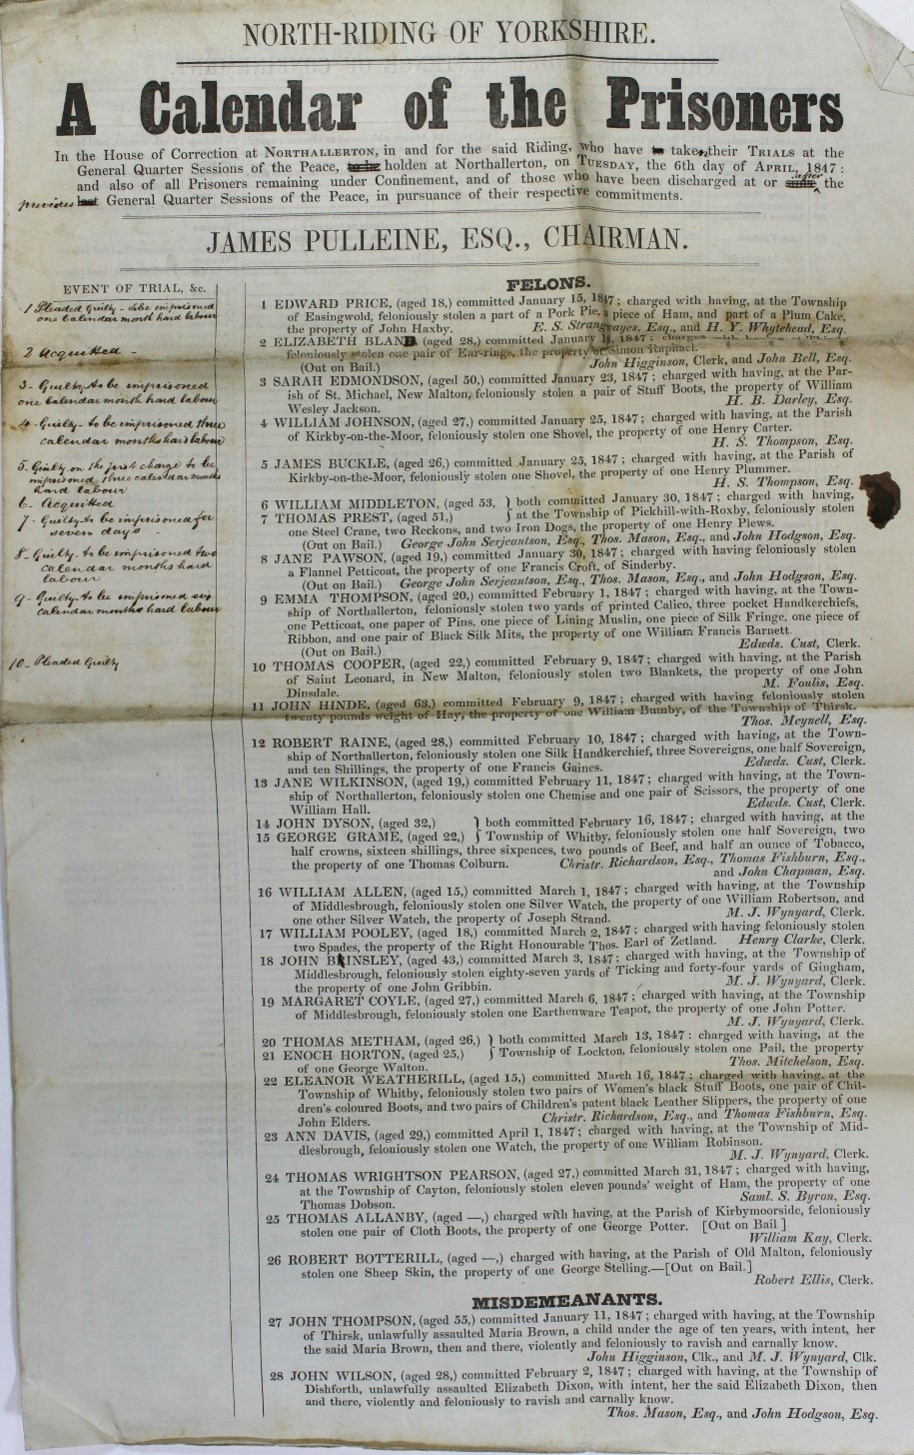 NORTH-RIDING OF YORKSHIRE.
A Calendar of the Prisoners
In the House of Correction at NORTHALLERTON, in and for the said Riding, who have taken their TRIALS at the
General Quarter Sessions of the Peace, holden at Northallerton, on TUESDAY, the 6th day of APRIL, 1847:
and also of all Prisoners remaining under Confinement, and of those who have been discharged at or after the
previous General Quarter Sessions of the Peace, in pursuance of their respective commitments.
JAMES PULLEINE, ESQ., CHAIRMAN.
EVENT OF TRIAL, &c.
1 Pleaded Guilty - to be imprisoned
one Calendar month hard labour
2 Acquitted -
3 - Guilty to be imprisoned
one Calendar month hard labour
4 - Guilty - to be imprisoned three
calendar months hard labour
5. Guilty on the first charge to be
imprisoned three calendar months
hard labour
6 - Acquitted
7 - Guilty to be imprisoned for
seven days -
8 - Guilty to be imprisoned two
calendar months hard
labour
9 - Guilty to be imprisoned six
calendar months hard labour
10 - Pleaded Guilty
FELONS.
1 EDWARD PRICE, (aged 18,) committed January 15, 1847; charged with having, at the Township
of Easingwold, feloniously stolen a part of a Pork Pie, a piece of Ham, and part of a Plum Cake,
the property of John Haxby. E. S. Strangwayes, Esq., and H. Y. Whytehead, Esq.
2 ELIZABETH BLAND (aged 28,) committed January 1847; charged with
feloniously stolen one pair of Ear-rings, the property of Simon Raphael.
(Out on Bail.) John Higginson, Clerk, and John Bell, Esq.
3 SARAH EDMONDSON, (aged 50,) committed January 23, 1847; charged with having, at the Par-
ish of St. Michael, New Malton, feloniously stolen a pair of Stuff Boots, the property of William
Wesley Jackson. H. B. Darley, Esq.
4 WILLIAM JOHNSON, (aged 27,) committed January 25, 1847; charged with having, at the Parish
of Kirkby-on-the-Moor, feloniously stolen one Shovel, the property of one Henry Carter.
H. S. Thompson, Esq.
5 JAMES BUCKLE, (aged 26,) committed January 25, 1847; charged with having, at the Parish of
Kirkby-on-the-Moor, feloniously stolen one Shovel, the property of one Henry Plummer.
H. S. Thompson, Esq.
6 WILLIAM MIDDLETON, (aged 53, } both committed January 30, 1847; charged with having,
7 THOMAS PREST, (aged 51,) } at the Township of Pickhill-with-Roxby, feloniously stolen
one Steel Crane, two Reckons, and two Iron Dogs, the property of one Henry Plews.
(Out on Bail.) George John Serjeantson, Esq., Thos. Mason, Esq., and John Hodgson, Esq.
8 JANE PAWSON, (aged 19,) committed January 30, 1847; charged with having feloniously stolen
a Flannel Petticoat, the property of one Francis Croft, of Sinderby.
(Out on Bail.) George John Serjeantson, Esq., Thos. Mason, Esq., and John Hodgson, Esq.
9 EMMA THOMPSON, (aged 20,) committed February 1, 1847; charged with having, at the Town-
ship of Northallerton, feloniously stolen two yards of printed Calico, three pocket Handkerchiefs,
one Petticoat, one paper of Pins, one piece of Lining Muslin, one piece of Silk Fringe, one piece of
Ribbon, and one pair of Black Silk Mits, the property of one William Francis Barnett.
(Out on Bail.) Edwds. Cust, Clerk.
10 THOMAS COOPER, (aged 22,) committed February 9, 1847; charged with having, at the Parish
of Saint Leonard, in New Malton, feloniously stolen two Blankets, the property of one John
Dinsdale. M. Foulis, Esq.
11 JOHN HINDE, (aged 63,) committed February 9, 1847; charged with having feloniously stolen
twenty pounds weight of Hay, the property of one William Bumby, of the Township of Thirsk.
Thos. Meynell, Esq.
12 ROBERT RAINE, (aged 28,) committed February 10, 1847; charged with having, at the Town-
ship of Northallerton, feloniously stolen one Silk Handkerchief, three Sovereigns, one half Sovereign,
and ten Shillings, the property of one Francis Gaines. Edwds. Cust, Clerk.
13 JANE WILKINSON, (aged 19,) committed February 11, 1847; charged with having, at the Town-
ship of Northallerton, feloniously stolen one Chemise and one pair of Scissors, the property of one
William Hall. Edwds. Cust, Clerk.
14 JOHN DYSON, (aged 32,) } both committed February 16, 1847; charged with having, at the
15 GEORGE GRAME, (aged 22,) } Township of Whitby, feloniously stolen one half Sovereign, two
half crowns, sixteen shillings, three sixpences, two pounds of Beef, and half an ounce of Tobacco,
the property of one Thomas Colburn. Christr. Richardson, Esq., Thomas Fishburn, Esq.,
and John Chapman, Esq.
16 WILLIAM ALLEN, (aged 15,) committed March 1, 1847; charged with having, at the Township
of Middlesbrough, feloniously stolen one Silver Watch, the property of one William Robertson, and
one other Silver Watch, the property of Joseph Strand. M. J. Wynyard, Clerk.
17 WILLIAM POOLEY, (aged 18,) committed March 2, 1847; charged with having feloniously stolen
two Spades, the property of the Right Honourable Thos. Earl of Zetland. Henry Clarke, Clerk.
18 JOHN BRINSLEY, (aged 43,) committed March 3, 1847; charged with having, at the Township of
Middlesbrough, feloniously stolen eighty-seven yards of Ticking and forty-four yards of Gingham,
the property of one John Gribbin. M. J. Wynyard, Clerk.
19 MARGARET COYLE, (aged 27,) committed March 6, 1847; charged with having, at the Township
of Middlesbrough, feloniously stolen one Earthenware Teapot, the property of one John Potter.
M. J. Wynyard, Clerk.
20 THOMAS METHAM, (aged 26,) } both committed March 13, 1847: charged with having, at the
21 ENOCH HORTON, (aged 25,) } Township of Lockton, feloniously stolen one Pail, the property
of one George Walton. Thos. Mitchelson, Esq.
22 ELEANOR WEATHERILL, (aged 15,) committed March 16, 1847; charged with having, at the
Township of Whitby, feloniously stolen two pairs of Women's black Stuff Boots, one pair of Chil-
dren's coloured Boots, and two pairs of Children's patent black Leather Slippers, the property of one
John Elders. Christr. Richardson, Esq., and Thomas Fishburn, Esq.
23 ANN DAVIS, (aged 29,) committed April 1, 1847; charged with having, at the Township of Mid-
dlesbrough, feloniously stolen one Watch, the property of one William Robinson.
M. J. Wynyard, Clerk.
24 THOMAS WRIGHTSON PEARSON, (aged 27,) committed March 31, 1847; charged with having,
at the Township of Cayton, feloniously stolen eleven pounds' weight of Ham, the property of one
Thomas Dobson. Saml. S. Byron, Esq.
25 THOMAS ALLANBY, (aged —,) charged with having, at the Parish of Kirbymoorside, feloniously
stolen one pair of Cloth Boots, the property of one George Potter. [Out on Bail.]
William Kay, Clerk.
26 ROBERT BOTTERILL, (aged —,) charged with having, at the Parish of Old Malton, feloniously
stolen one Sheep Skin, the property of one George Stelling.—[Out on Bail.]
Robert Ellis, Clerk.
MISDEMEANANTS.
27 JOHN THOMPSON, (aged 55,) committed January 11, 1847; charged with having, at the Township
of Thirsk, unlawfully assaulted Maria Brown, a child under the age of ten years, with intent, her
the said Maria Brown, then and there, violently and feloniously to ravish and carnally know.
John Higginson, Clk., and M. J. Wynyard, Clk.
28 JOHN WILSON, (aged 28,) committed February 2, 1847; charged with having, at the Township of
Dishforth, unlawfully assaulted Elizabeth Dixon, with intent, her the said Elizabeth Dixon, then
and there, violently and feloniously to ravish and carnally know.
Thos. Mason, Esq., and John Hodgson, Esq.